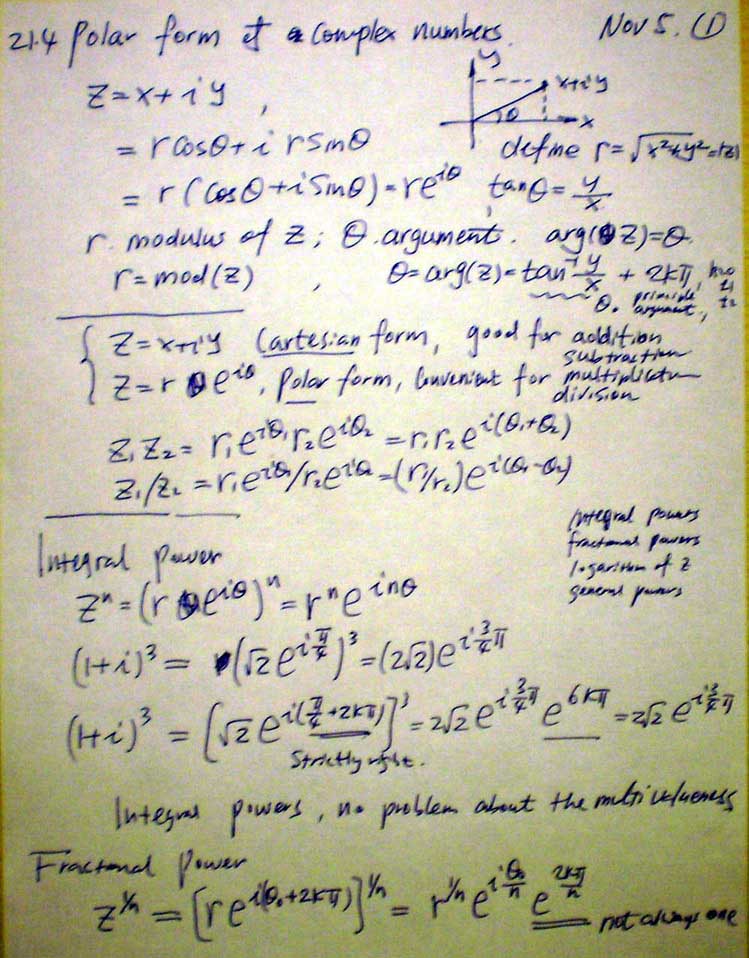 21.4 Polar form of complex numbers. Nov 5. ①
z = x + iy ,
y
x+iy
θ
x
= r cosθ + i r sinθ
define r = √x²+y² = |z|
= r (cosθ + i sinθ) = re^{iθ}
tanθ = y/x
r. modulus of z ; θ. argument. arg(z) = θ.
r = mod(z) , θ = arg(z) = tan⁻¹ y/x + 2kπ, k=0
±1
±2
θ₀ principle argument,
z = x+iy Cartesian form, good for addition
subtraction
z = r e^{iθ}, Polar form, convenient for multiplication
division
z₁z₂ = r₁e^{iθ₁} r₂e^{iθ₂} = r₁r₂ e^{i(θ₁+θ₂)}
z₁/z₂ = r₁e^{iθ₁}/r₂e^{iθ₂} = (r₁/r₂) e^{i(θ₁-θ₂)}
Integral powers
fractional powers
logarithm of z
general powers
Integral Power
zⁿ = (r e^{iθ})ⁿ = rⁿ e^{inθ}
(1+i)³ = (√2 e^{i π/4})³ = (2√2) e^{i 3/4 π}
(1+i)³ = [√2 e^{i(π/4 + 2kπ)}]³ = 2√2 e^{i 3/4 π} e^{6kπ} = 2√2 e^{i 3/4 π}
Strictly right.
Integral powers, no problem about the multivalueness
Fractional Power
z^{1/n} = [r e^{i(θ₀+2kπ)}]^{1/n} = r^{1/n} e^{i θ₀/n} e^{2kπ/n} not always one